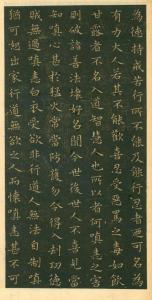 為德持戒苦行所不能及能行忍者乃可名為
有力大人若其不能歡喜忍受惡罵之毒如飲
甘露者不名入道智慧人也所以者何瞋恚之害
則破諸善法壞好名聞今世後世人不喜見當
知瞋心甚於猛火常當防護勿令得入劫功德
賊無過瞋恚白衣受欲非行道人無法自制瞋
猶可恕出家行道無欲之人而懷瞋恚甚不可